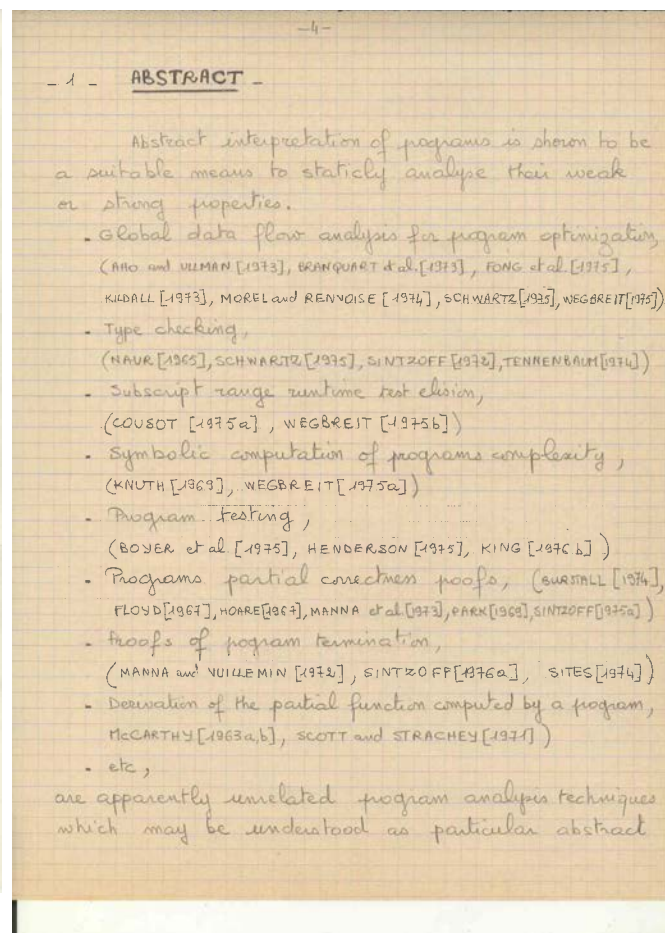 -4-
- 1 - ABSTRACT -
Abstract interpretation of programs is shown to be
a suitable means to staticly analyse their weak
or strong properties.
- Global data flow analysis for program optimization,
(AHO and ULLMAN [1973], BRANQUART et al. [1973], FONG et al. [1975],
KILDALL [1973], MOREL and RENVOISE [1974], SCHWARTZ [1975], WEGBREIT [1975])
- Type checking,
(NAUR [1965], SCHWARTZ [1975], SINTZOFF [1972], TENNENBAUM [1974])
- Subscript range runtime test elision,
(COUSOT [1975a], WEGBREIT [1975b])
- Symbolic computation of programs complexity,
(KNUTH [1969], WEGBREIT [1975a])
- Program testing,
(BOYER et al. [1975], HENDERSON [1975], KING [1976b])
- Programs partial correctness poofs, (BURSTALL [1974],
FLOYD [1967], HOARE [1967], MANNA et al. [1973], PARK [1969], SINTZOFF [1975a])
- Proofs of program termination,
(MANNA and VUILLEMIN [1972], SINTZOFF [1976a], SITES [1974])
- Derivation of the partial function computed by a program,
McCARTHY [1963a,b], SCOTT and STRACHEY [1971])
- etc,
are apparently unrelated program analysis techniques
which may be understood as particular abstract